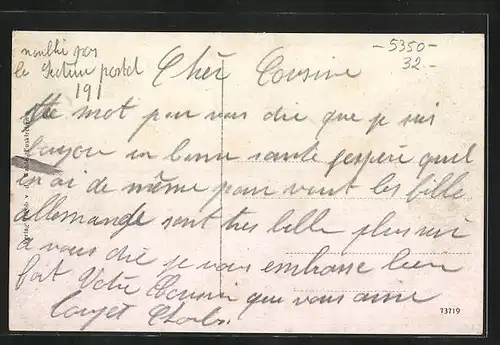 noublié pas
le Secteur postal
191
-5350-
32.-
Cher Cousine
mot pour vous dire que je suis
en bonne santé jespère quil
en ai de même pour vous les fille
allemande sont très belle plus rien
a vous dire je vous embrasse bien
fort Votre Cousin que vous aime
Charles.
73719